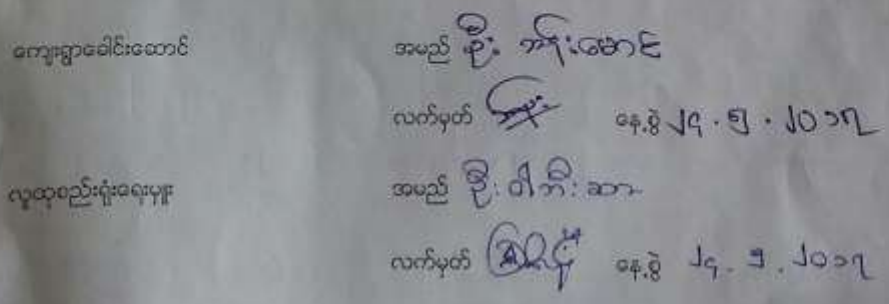 ကျေးရွာခေါင်းဆောင် အမည် ဦး ဘန်းမောင်
လက်မှတ် နေ့စွဲ ၂၄.၅.၂၀၁၇
လူထုစည်းရုံးရေးမှူး အမည် ဦး ဝါဘီးဆာ
လက်မှတ် နေ့စွဲ ၂၄.၅.၂၀၁၇